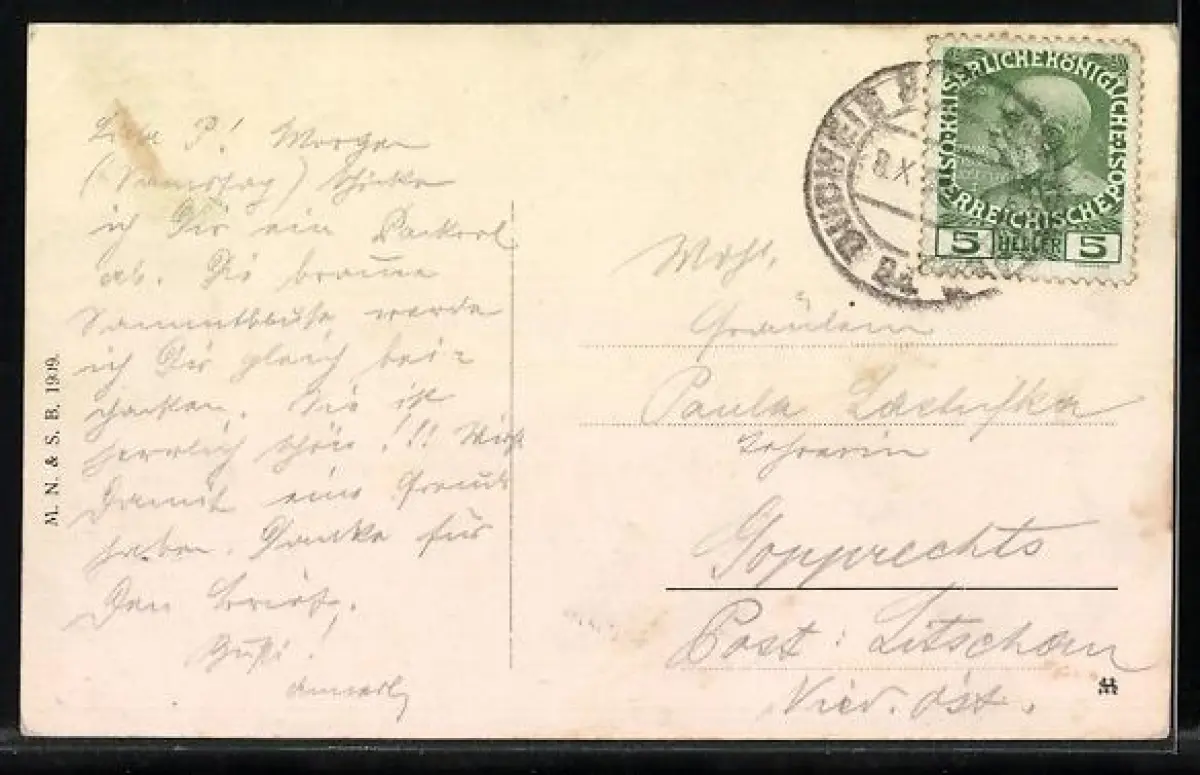 Liebe P! Morgen
(Samstag) schicke
ich Dir ein Packerl
ab. Die braune
Sammtbluse werde
ich Dir gleich bei-
packen. Sie ist
herrlich schön!!! Wirst
damit eine Freude
haben. Danke für
den Brief.
Bussi!
M. N. & S. B. 1909.
8.X
KAISERLICHE KÖNIGLICHE ÖSTERREICHISCHE POST
5 HELLER 5
Wohl.
Fräulein
Paula
Lehrerin
Gopprechts
Post: Litschau
Nied. Öst.